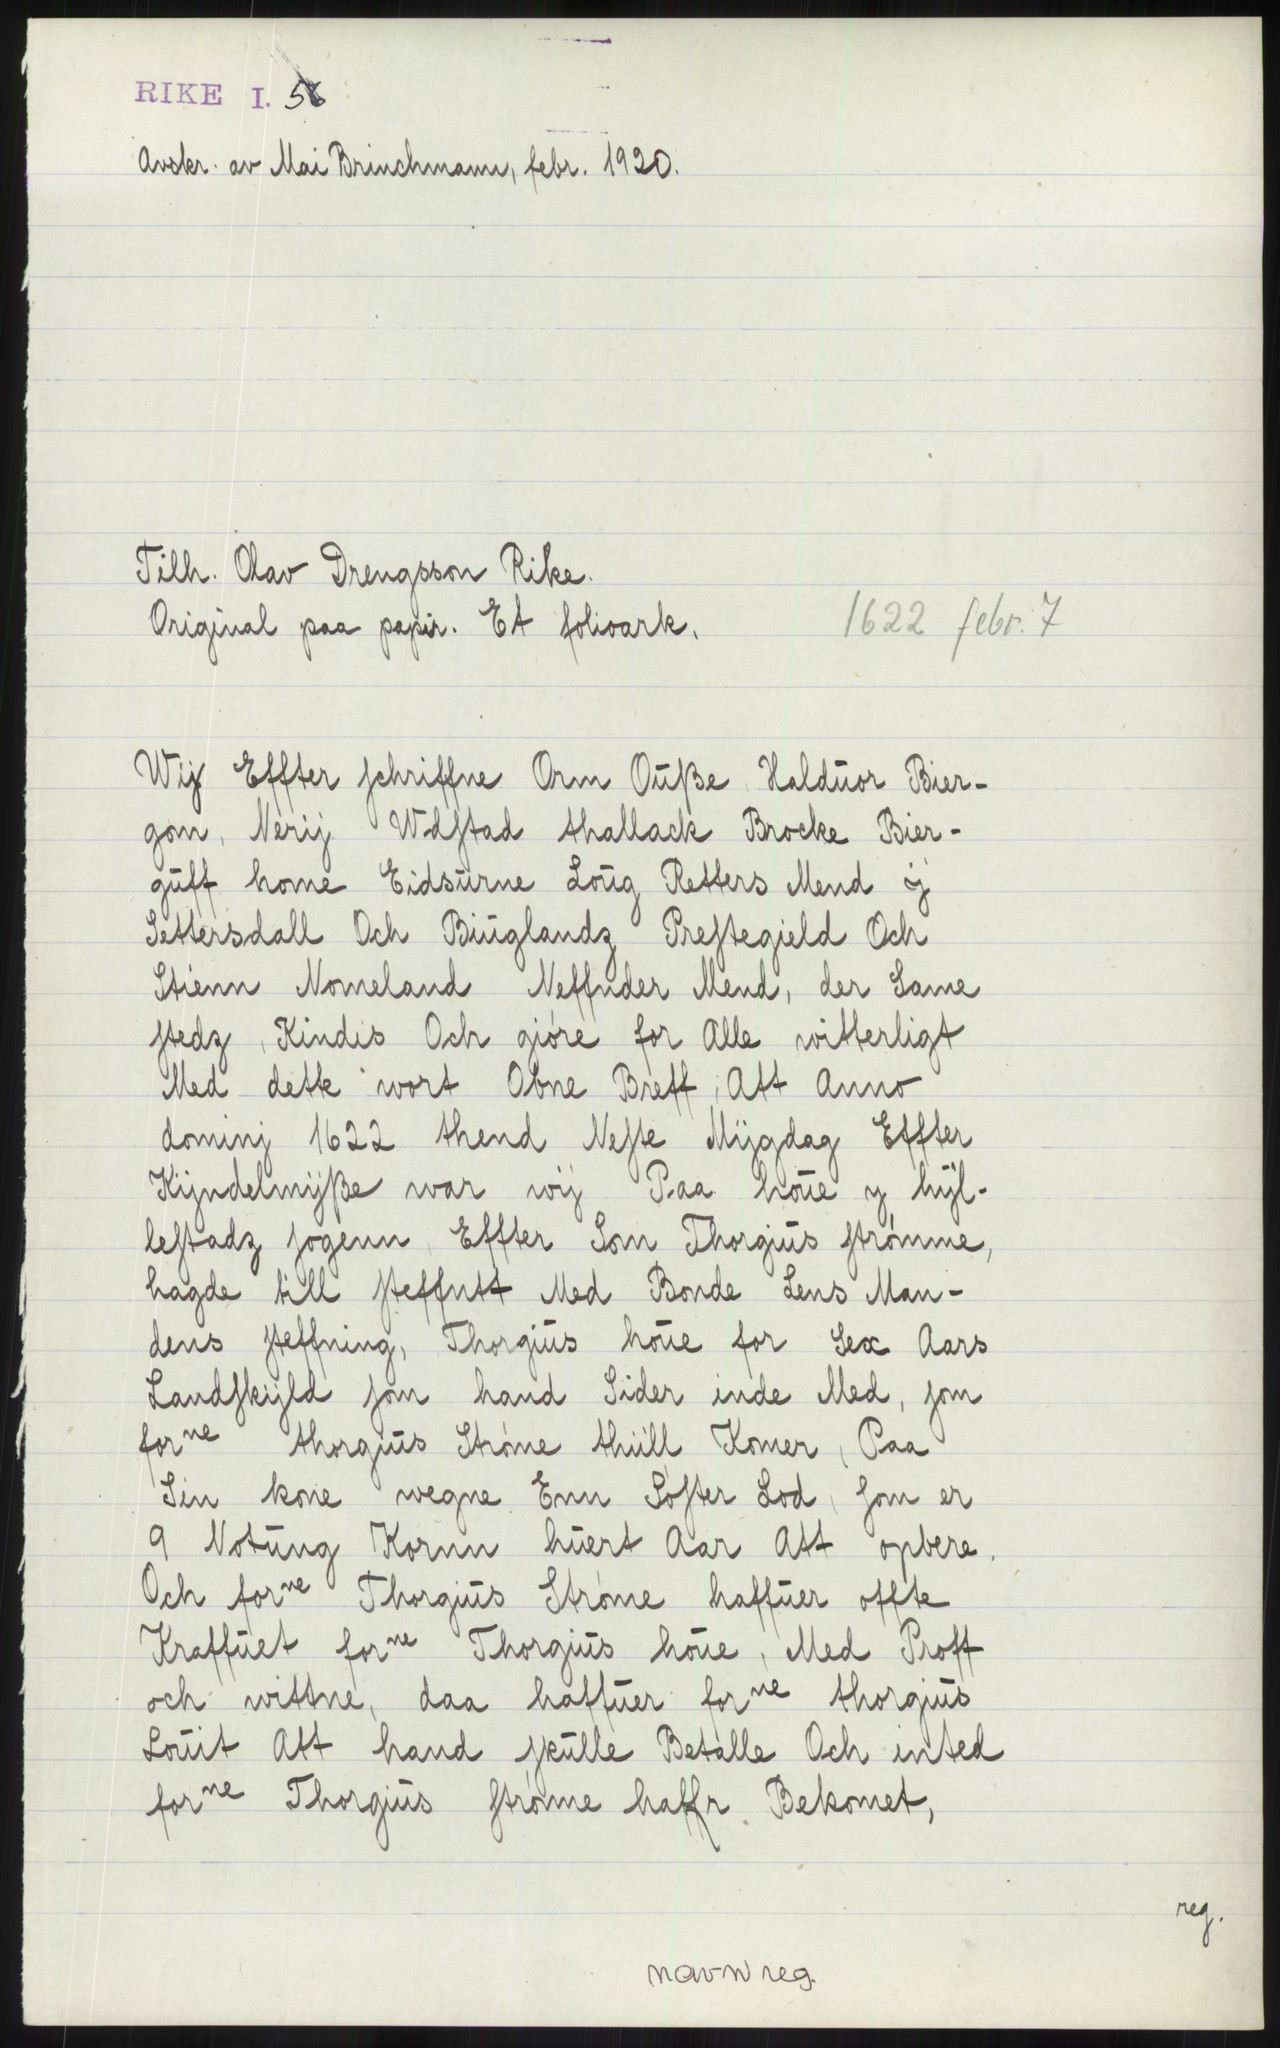 RIKE I. 5
Avskr. av Mai Brinchmann, febr. 1920.
Tilh. Olav Drengsson Rike.
Original paa papir. Et folioark.
1622 febr. 7
Wij Effter schriffne Orm Oũße Haldũor Bier-
gom, Nerij Wdstad thallack Brocke Bier-
gũff home Eidsũrne Loũg Retters Mend ij
Settersdall Och Biũglandz Prestegield Och
Stienn Nomeland Neffnder Mend, der Same
stedz, Kindis Och gióre for Alle witterligt
Med dette wort Obne Breff, Att Anno
dominj 1622 thend Neste Mijgdag Effter
Kijndelmijße war wij Paa hoũe y hijl-
lestadz sogenn, Effter Som Thorgiũs strómme,
hagde till steffntt Med Bonde Lens Man-
dens steffning, Thorgiũs hoũe for Sex Aars
Landskijld som hand Sider inde Med, som
forne thorgiũs Stróme thiill Komer, Paa
Sin kone wegne Enn Sóster Lod, som er
9 Notũng Kornn hũert Aar Att opbere.
Och forne Thorgiũs Stróme haffũer offte
Kraffũet forne Thorgiũs hoũe, Med Proff
och wittne, daa haffũer forne thorgiũs
Loũit Att hand skũlle Betalle Och inted
forne Thorgiũs strómme haffr Bekomet,
reg.
navnreg.